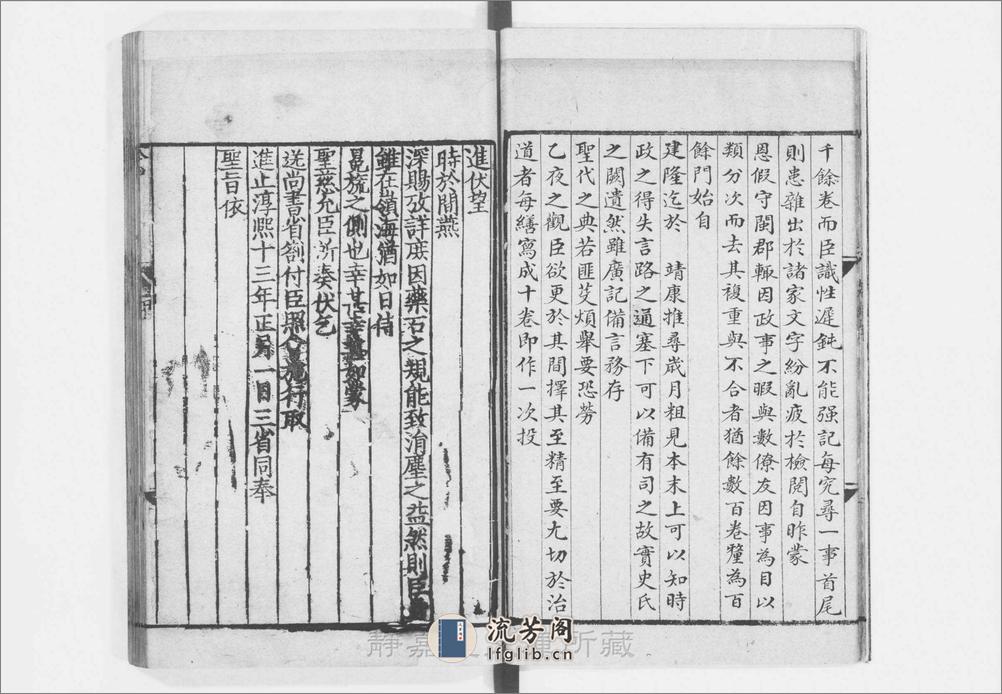 千餘卷而臣識性遲鈍不能强記每究尋一事首尾
則患雜出於諸家文字紛亂疲於檢閱自昨蒙
恩假守閩郡輒因政事之暇與數僚友因事為目以
類分次而去其複重與不合者猶餘數百卷釐為百
餘門始自
建隆迄於 靖康推尋歲月粗見本末上可以知時
政之得失言路之通塞下可以備有司之故實史氏
之闕遺然雖廣記備言務存
聖代之典若匪芟煩舉要恐勞
乙夜之觀臣欲更於其間擇其至精至要尤切於治
道者每繕寫成十卷即作一次投
進伏望
時於閒燕
深賜攷詳庶因藥石之規能致涓塵之益然則臣
雖在嶺海猶如日侍
冕旒之側也幸甚幸甚如蒙
聖慈允臣所奏伏乞
送尚書省劄付臣照會施行取
進止淳熙十三年正月一日三省同奉
聖旨依
静嘉堂文庫所藏
流芳阁
lfglib.cn